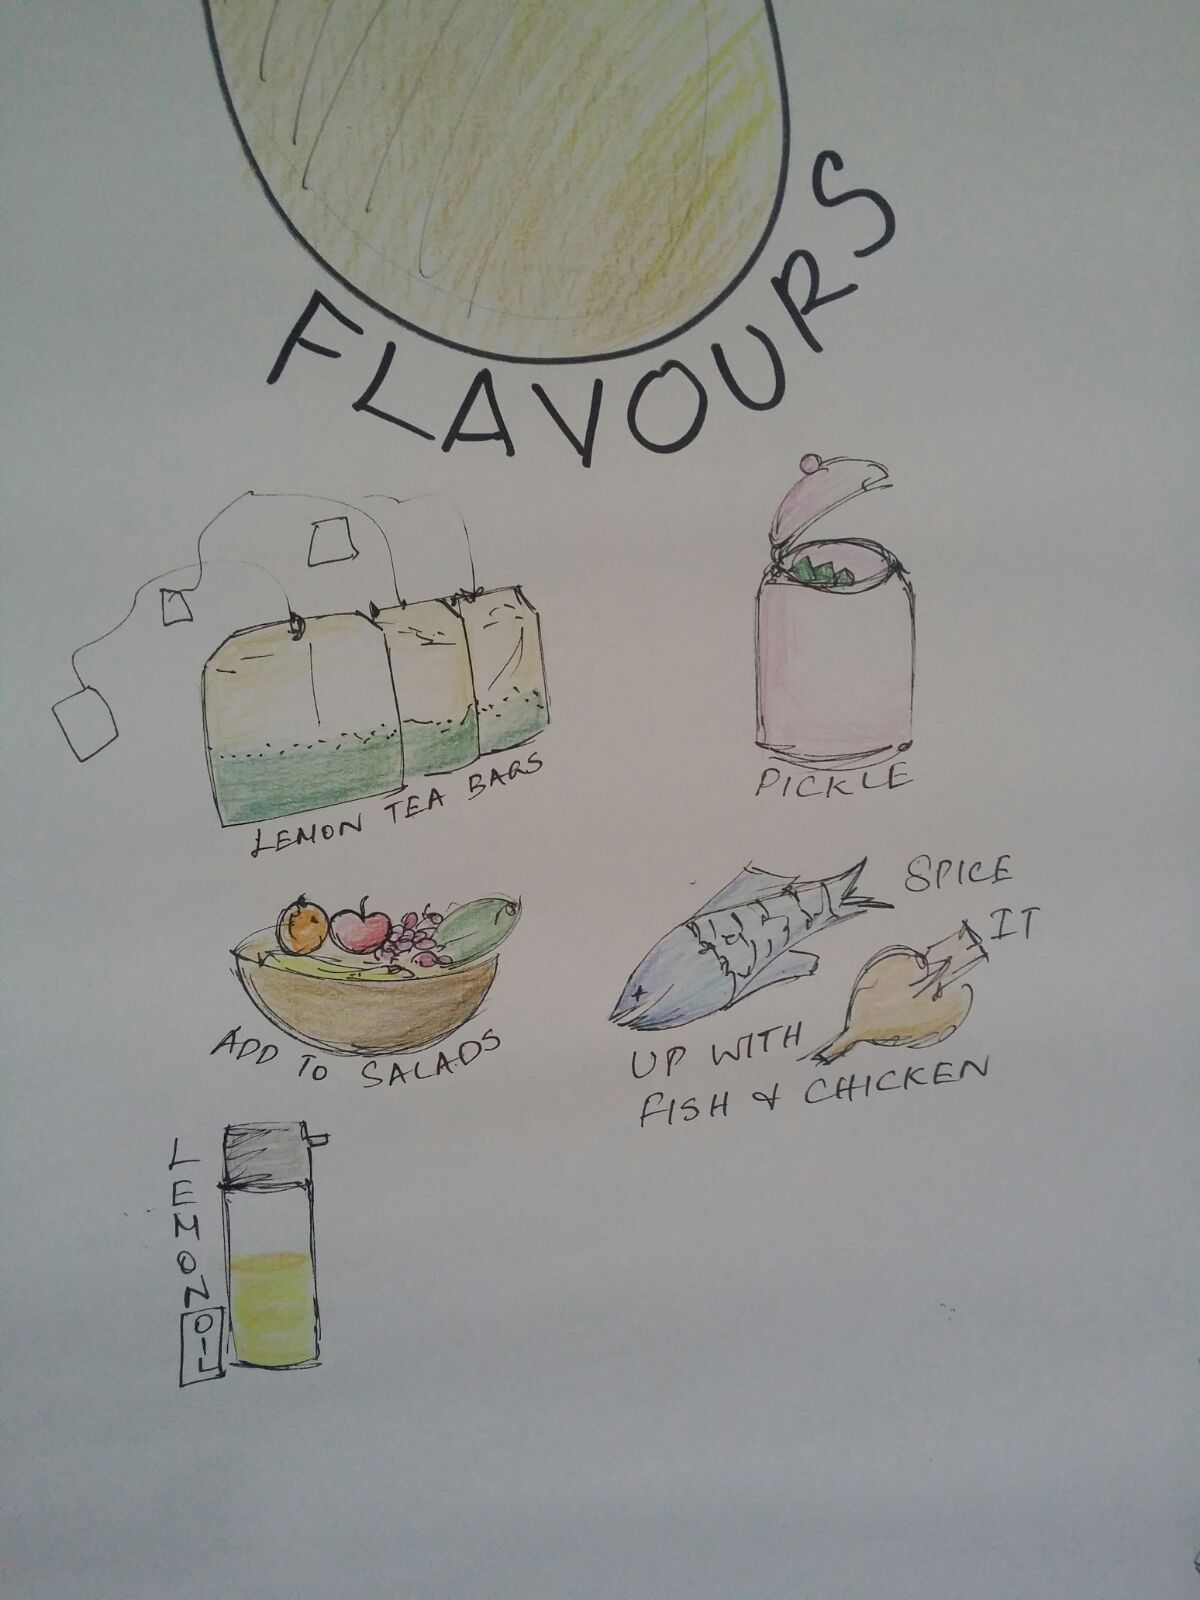 FLAVOURS
LEMON TEA BAGS
PICKLE
ADD TO SALADS
SPICE
IT
UP WITH
FISH & CHICKEN
LEMON
OIL